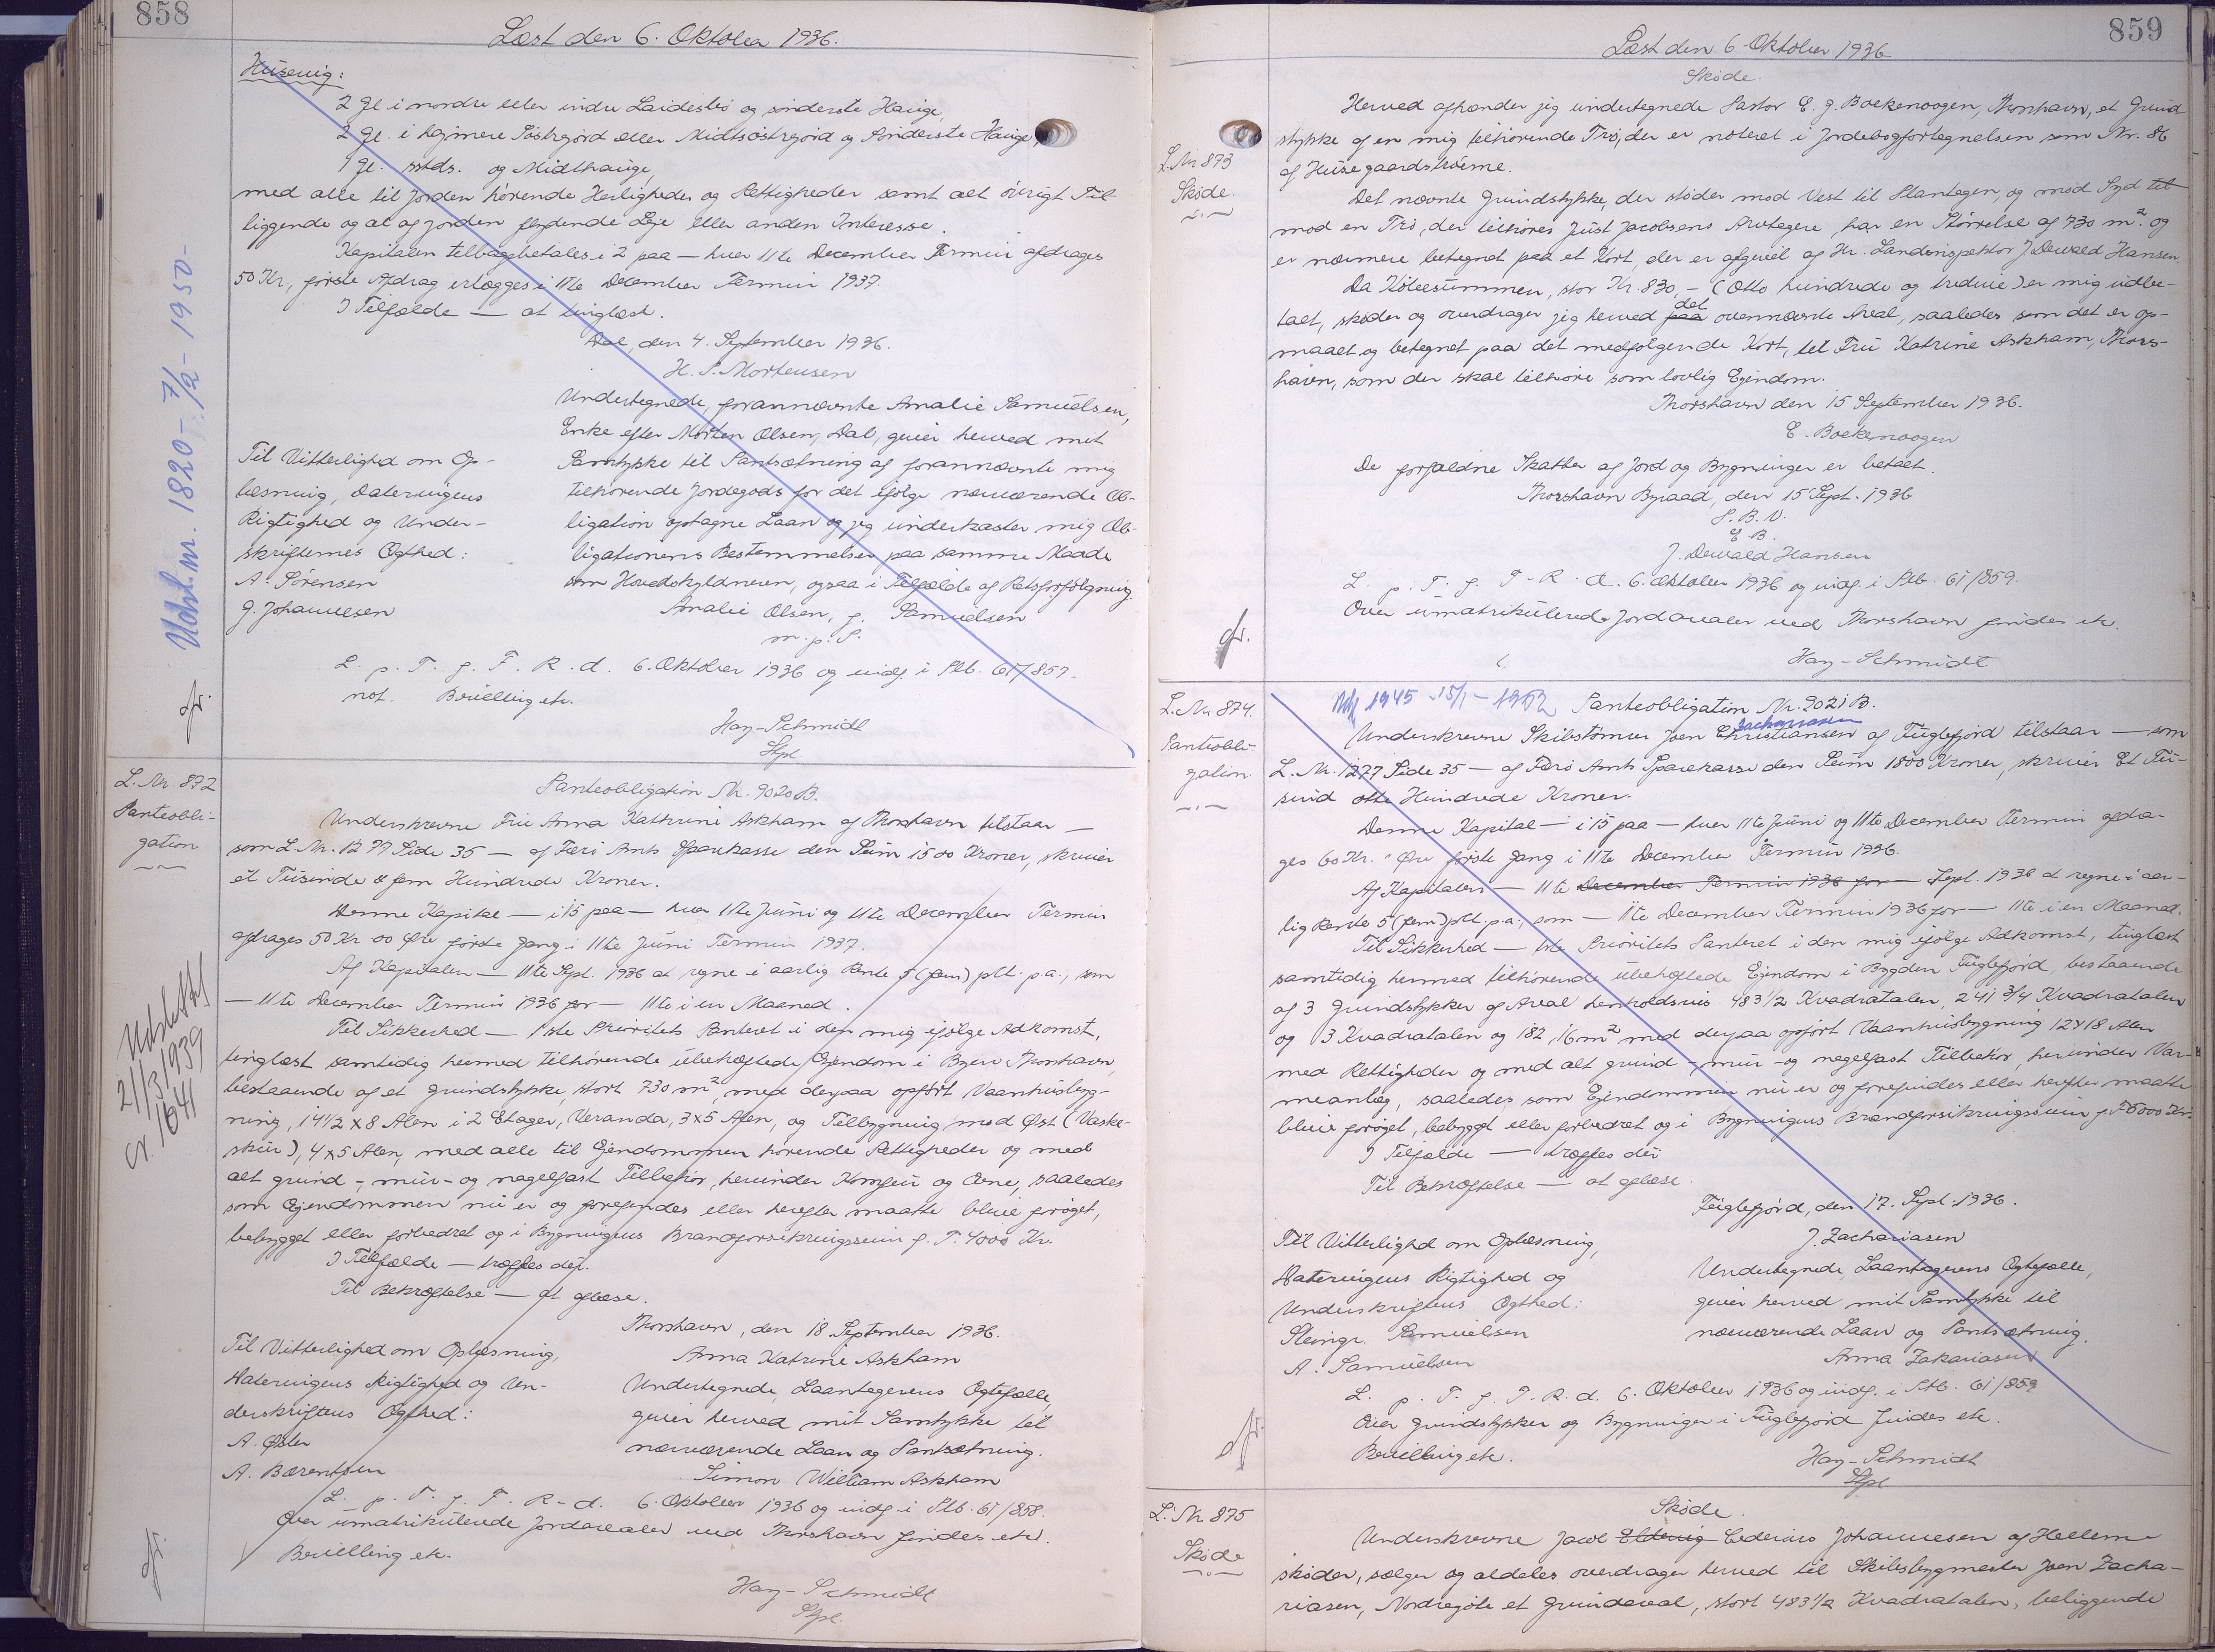 858
Læst den 6. Oktober 1936.
Húsevig:
2 Gl. i nordre eller indre Laidesbø og sønderste Hauge,
1 Gl. sstds. og Midthauge,
med alle til Jorden hørende Herligheder og Rettigheder samt alt øvrigt Til-
liggende og al af Jorden flydende Leje eller anden Interesse.
Kapitalen tilbagebetales i 2 paa — hver 11te December Termin afdrages
50 Kr., første Afdrag erlægges i 11te December Termin 1937.
I Tilfælde — at tinglæst.
Dal, den 4. September 1936.
H. S. Mortensen
Undertegnede, forannævnte Amalie Samuelsen,
Enke efter Morten Olsen, Dal, giver herved mit
Samtykke til Pantsætning af forannævnte mig
tilhørende Jordegods for det ifølge nærværende Ob-
ligation optagne Laan og jeg underkaster mig Ob-
ligationens Bestemmelser paa samme Maade
som Hovedskyldneren, ogsaa i Tilfælde af Retsforfølgning.
Amalie Olsen, f. Samuelsen
m. p. S.
Til Vitterlighed om Op-
læsning, Dateringens
Rigtighed og Under-
skrifternes Ægthed:
A. Sørensen
J. Johannesen
L. p. T. f. F. R. d. 6. Oktober 1936 og indf. i Ptb. 61/857.
not. Bevilling etc.
Hay-Schmidt
Stpl.
Udsl. nr. 1820 - 7/2 - 1950 -
cfr.
L. Nr. 872
Panteobli-
gation
Panteobligation Nr. 9020 B.
Underskrevne Fru Anna Kathrine Askham af Thorshavn tilstaar —
som L. Nr. 1277 Side 35 — af Færø Amts Sparekasse den Sum 1500 Kroner, skriver
et Tusinde & fem Hundrede Kroner.
Denne Kapital — i 15 paa — hver 11te Juni og 11te December Termin
afdrages 50 Kr 00 Øre første Gang i 11te Juni Termin 1937.
Af Kapitalen — 11te Sept. 1936 at regne i aarlig Rente 5 (fem) pCt. p.a., som
— 11te December Termin 1936 for — 11te i en Maaned.
Til Sikkerhed — 1ste Prioritets Panteret i den mig ifølge Adkomst,
tinglæst samtidig hermed tilhørende ubehæftede Ejendom i Byen Thorshavn,
bestaaende af et Grundstykke, stort 730 m², med derpaa opført Vaanhusbyg-
ning, 14 1/2 x 8 Alen i 2 Etager, Veranda, 3x5 Alen, og Tilbygning mod Øst (Vaske-
skur), 4x5 Alen, med alle til Ejendommen hørende Rettigheder og med
alt grund-, mur- og nagelfast Tilbehør, herunder Komfur og Ovne, saaledes
som Ejendommen nu er og forefindes eller herefter maatte blive forøget,
bebygget eller forbedret og i Bygningens Brandforsikringssum p. T. 4000 Kr.
I Tilfælde — træffes der.
Til Bekræftelse — at aflæse.
Thorshavn, den 18 September 1936.
Anna Katrine Askham
Undertegnede Laantagerens Ægtefælle,
giver herved mit Samtykke til
nærværende Laan og Pantsætning.
Simon William Askham
Til Vitterlighed om Oplæsning,
Dateringens Rigtighed og Un-
derskriftens Ægthed:
A. Øster
A. Bærentsen
L. p. T. f. F. R. d. 6. Oktober 1936 og indf. i Ptb. 61/858.
Over umatrikulerede Jordarealer ved Thorshavn findes etc.
Bevilling etc.
Hay-Schmidt
Stpl.
Udslettet
21/3 1939
Nr. 1641
cfr.
859
Læst den 6 Oktober 1936
L. Nr 873
Skøde.
Skøde.
Herved afhænder jeg undertegnede Pastor E. J. Boekenoogen, Thorshavn, et Grund
stykke af en mig tilhørende Trø, der er noteret i Jordebogfortegnelsen som Nr. 86
af Husegaardstrøerne.
Det nævnte Grundstykke, der støder mod Vest til Plantagen, og mod Syd til
mod en Trø, der tilhører Just Jacobsens Arvtagere, har en Størrelse af 730 m² og
er nærmere betegnet paa et Kort, der er afgivet af Hr. Landinspektør J Dewald Hansen.
Da Købesummen, stor Kr. 830,- (Otto hundrede og tredive) er mig udbe-
talt, skøder og overdrager jeg herved paa det ovennævnte Areal, saaledes som det er op-
maalt og betegnet paa det medfølgende Kort, til Fru Katrine Askham, Thors-
havn, som der skal tilhøre som lovlig Ejendom.
Thorshavn den 15 September 1936.
E. Boekenoogen
De forfaldne Skatter af Jord og Bygninger er betalt.
Thorshavn Byraad, den 15 Sept. 1936
P. B. V.
E. B.
J. Dewald Hansen
L. p. T. f. F. R. d. 6. Oktober 1936 og indf. i Ptb. 61/859.
Over umatrikulerede Jordarealer ved Thorshavn findes etc.
Hay-Schmidt
cfr.
L. Nr. 874.
Panteobli-
gation
Panteobligation Nr. 9021 B.
Underskrevne Skibstømrer Joen Christiansen Zachariasen af Fuglefjord tilstaar — som
L. Nr. 1277 Side 35 — af Færø Amts Sparekasse den Sum 1800 Kroner, skriver Et Tu-
sind otte Hundrede Kroner.
Denne Kapital — i 15 paa — hver 11te Juni og 11te December Termin afdra-
ges 60 Kr. " Øre første Gang i 11te December Termin 1936.
Af Kapitalen — 11te December Termin 1936 for — Sept. 1936 at regne i aar-
lig Rente 5 (fem) pCt. p.a., som — 11te December Termin 1936 for — 11te i en Maaned.
Til Sikkerhed — 1ste Prioritets Panteret i den mig ifølge Adkomst, tinglæst
samtidig hermed tilhørende ubehæftede Ejendom i Bygden Fuglefjord, bestaaende
af 3 Grundstykker af Areal henholdsvis 483 1/2 Kvadratalen, 241 3/4 Kvadratalen
og 13 Kvadratalen og 182,16 m² med derpaa opført Vaanhusbygning 12x18 Alen
med Rettigheder og med alt grund-, mur- og nagelfast Tilbehør, herunder Var-
meanlæg, saaledes som Ejendommen nu er og forefindes eller herefter maatte
blive forøget, bebygget eller forbedret og i Bygningens Brandforsikringssum p. T. 6000 Kr.
I Tilfælde — træffes der
Til Bekræftelse — at aflæse.
Fuglefjord, den 17. Sept. 1936.
J. Zachariasen
Undertegnede Laantagerens Ægtefælle,
giver herved mit Samtykke til
nærværende Laan og Pantsætning.
Anna Zakariasen
Til Vitterlighed om Oplæsning,
Dateringens Rigtighed og
Underskriftens Ægthed:
Samuelsen
A. Samuelsen
L. p. T. f. F. R. d. 6. Oktober 1936 og indf. i Ptb. 61/859
Over Grundstykker og Bygninger i Fuglefjord findes etc.
Bevilling etc.
Hay-Schmidt
Stpl
cfr.
L. Nr 875
Skøde
Skøde.
Underskrevne Jacob Ludvig Johannesen af Hellerne
skøder, sælger og aldeles overdrager herved til Skibsbygmester Joen Zacha-
riasen, Nordregøte et Grundareal, stort 483 1/2 Kvadratalen, beliggende